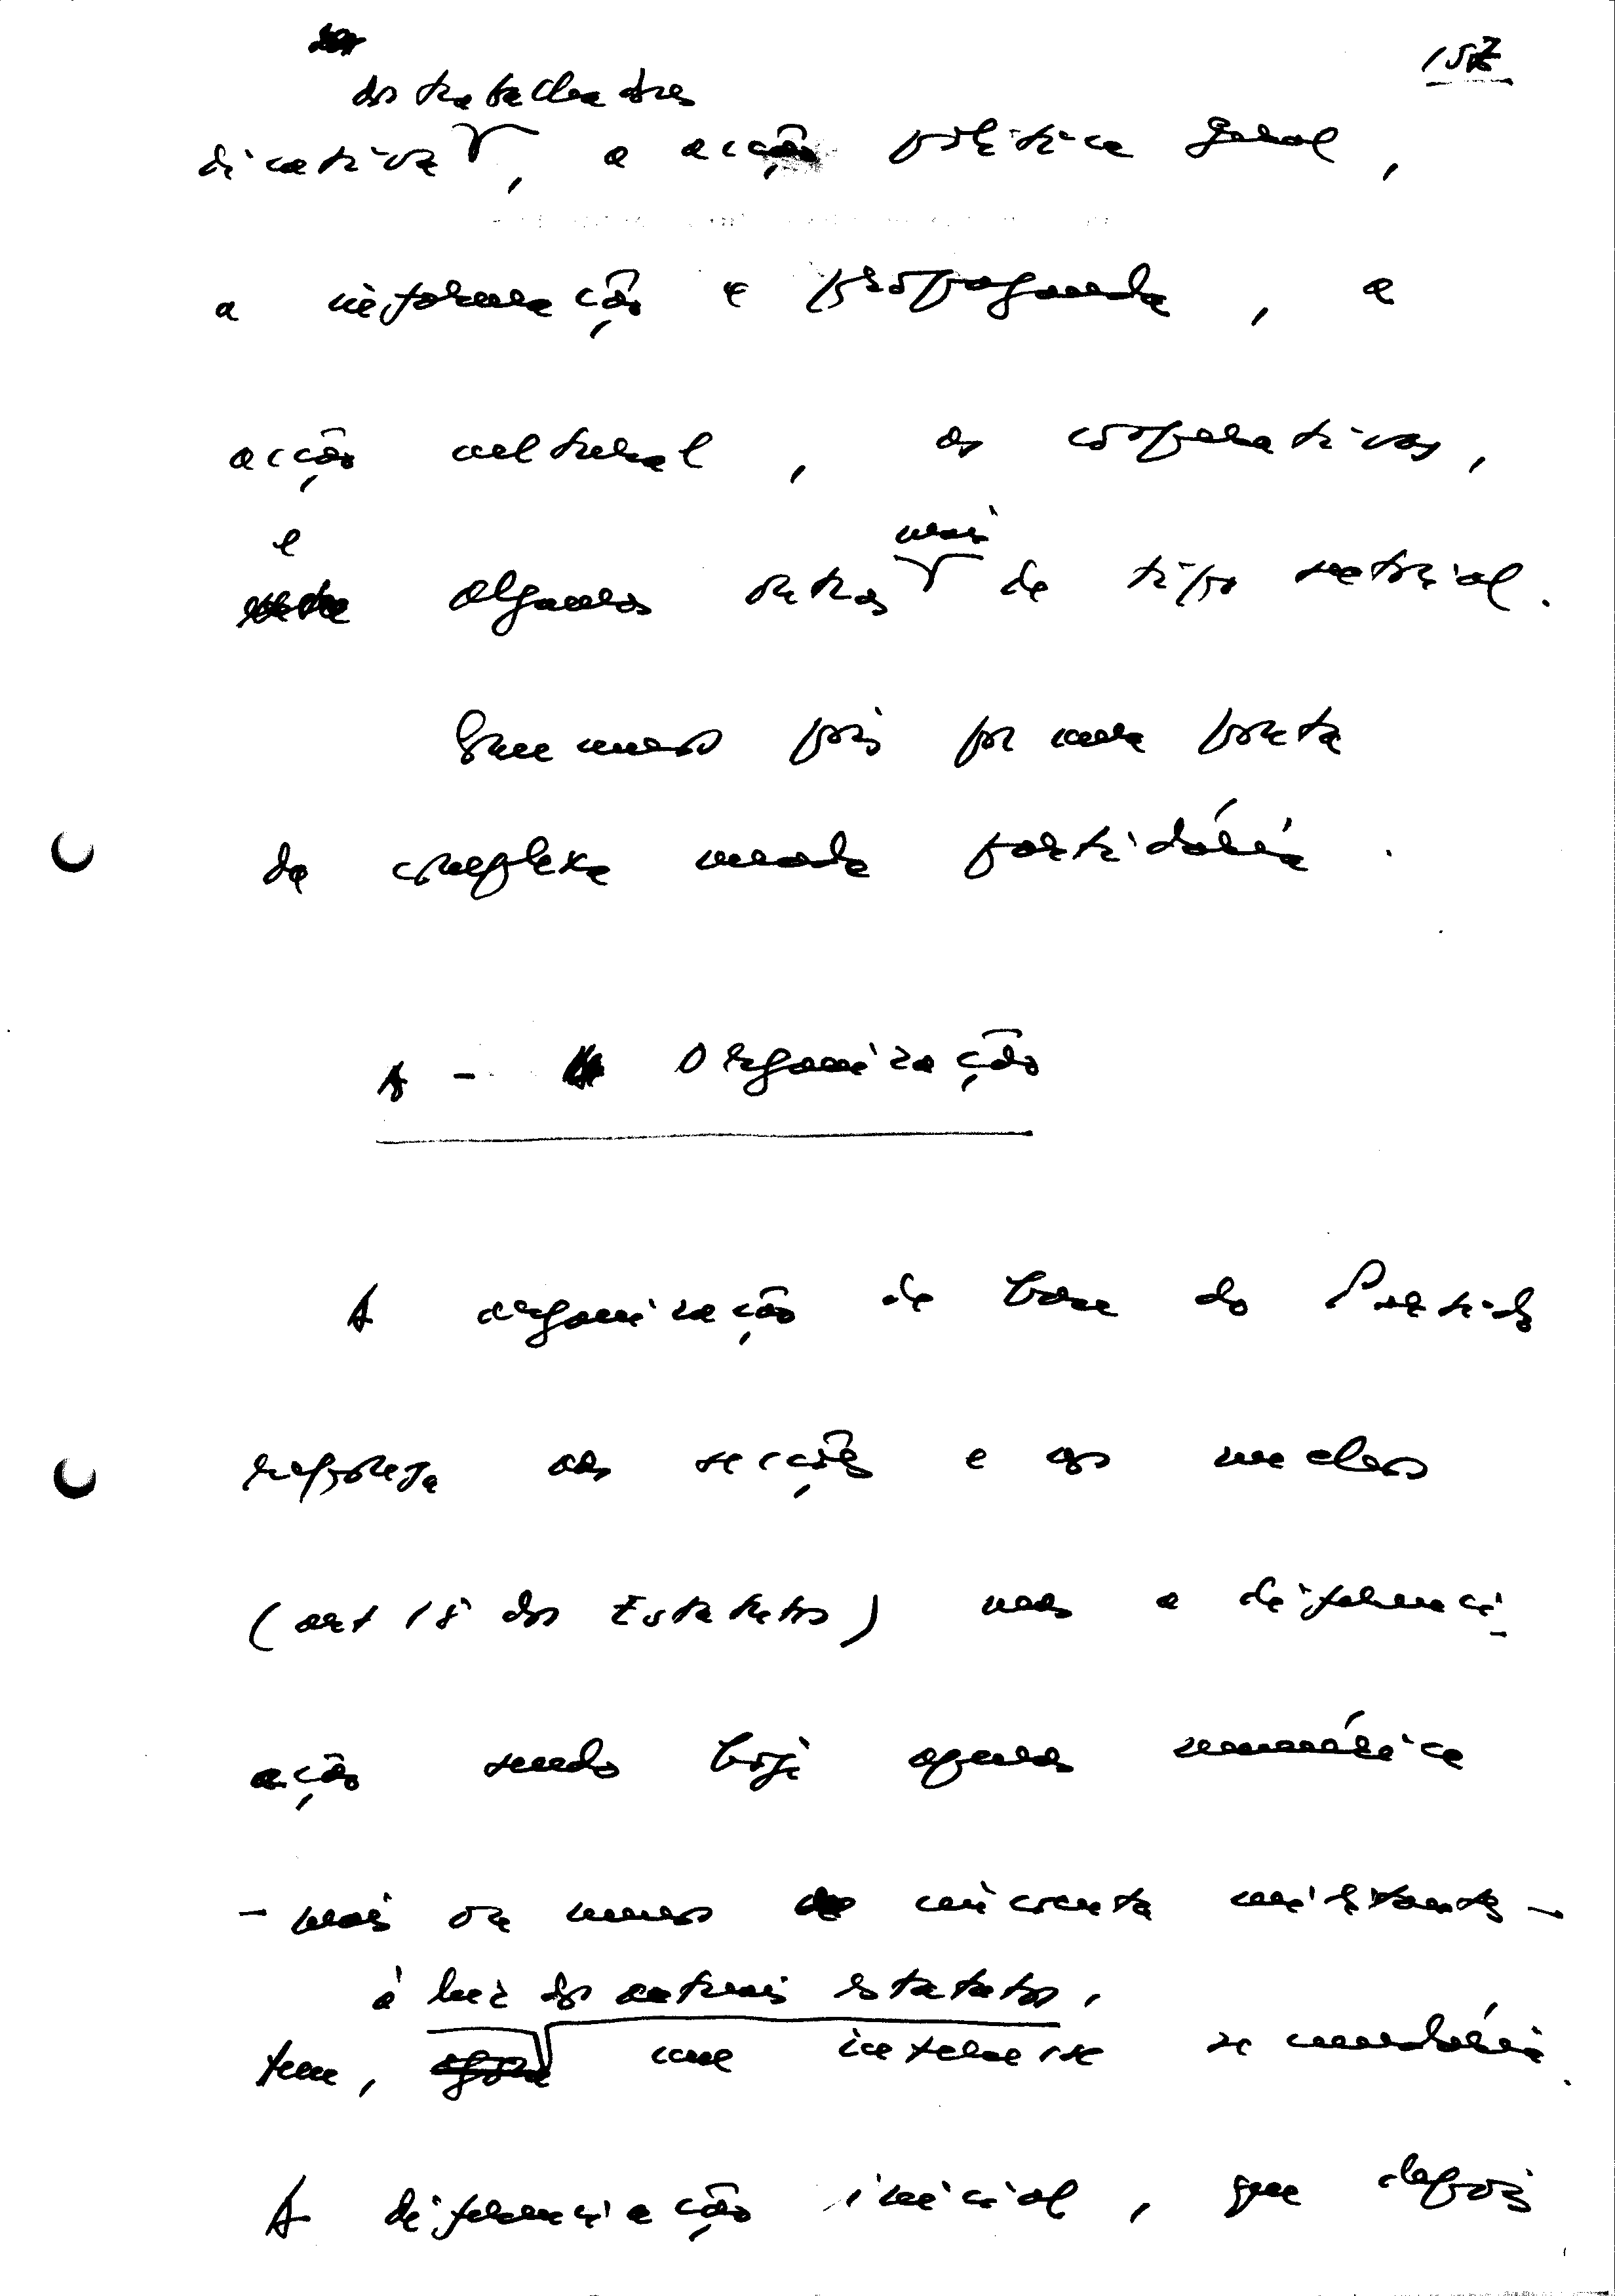 157
dos trabalhadores
dicativa, a acção politica geral,
a informação e propaganda, a
acção cultural, as cooperativas,
e mais
algumas outras de tipo sectorial.
pois por uma ponta
da complexa meada partidária.
A - Organização
A organização de base do Partido
respeita às secções e aos nucleos
(art 18 dos Estatutos) mas a diferenci-
ação sendo hoje apenas numérica
- mais ou menos cincoenta militantes -
à luz dos actuais estatutos,
tem, um interesse secundário.
A diferenciação inicial, que depois